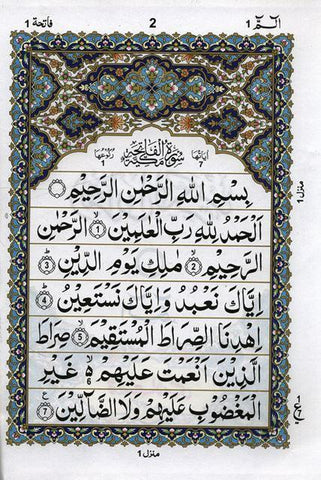 فاتحة 1
2
الٓمّٓ 1
اٰیاتها ٧
سُوْرَةُ الْفَاتِحَةِ مَكِّيَّةٌ
رکوعها ١
بِسْمِ اللهِ الرَّحْمٰنِ الرَّحِيْمِ
اَلْحَمْدُ لِلّٰهِ رَبِّ الْعٰلَمِيْنَ ۙ﴿1﴾ الرَّحْمٰنِ
الرَّحِيْمِ ۙ﴿2﴾ مٰلِكِ يَوْمِ الدِّيْنِ ﴿3﴾
اِيَّاكَ نَعْبُدُ وَاِيَّاكَ نَسْتَعِيْنُ ﴿4﴾
اِهْدِنَا الصِّرَاطَ الْمُسْتَقِيْمَ ۙ﴿5﴾ صِرَاطَ
الَّذِيْنَ اَنْعَمْتَ عَلَيْهِمْ ۙ۬ غَيْرِ
الْمَغْضُوْبِ عَلَيْهِمْ وَلَا الضَّآلِّيْنَ ﴿7﴾
منزل ١
منزل ١